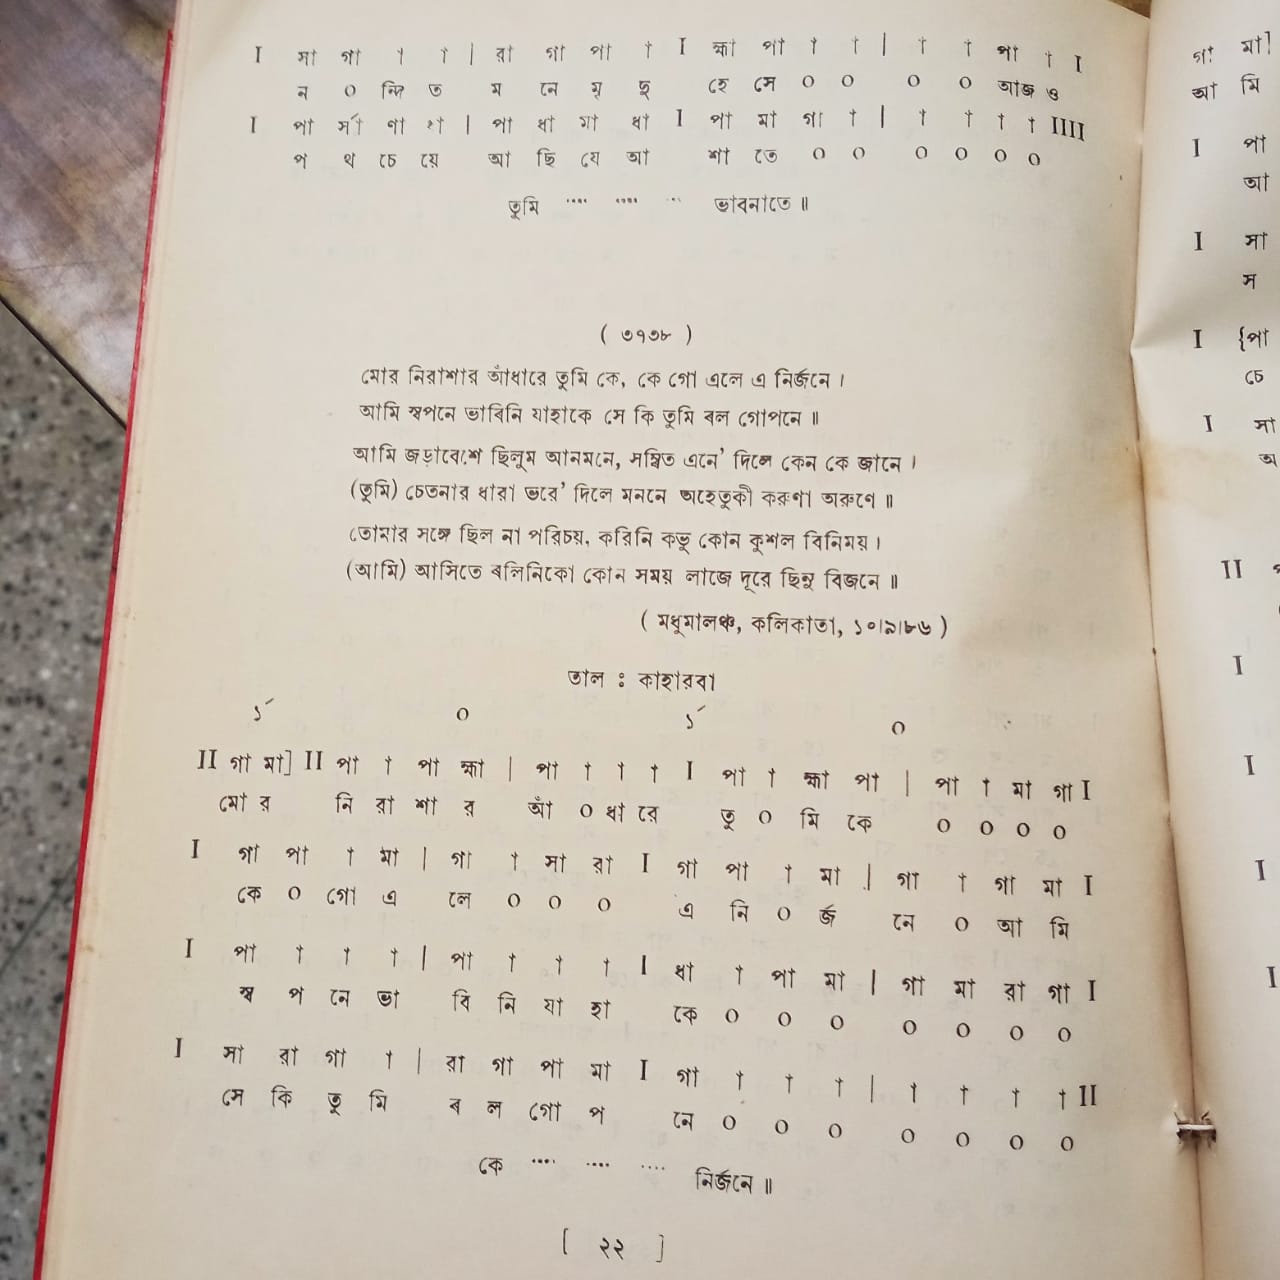 I সা গা † † | রা গা পা † I হ্মা পা † † | † † পা † I
ন ০ ন্দি ত ম নে মৃ দু হে সে ০ ০ ০ ০ আজ ও
I পা র্সা ণা ধা | পা ধা মা ধা I পা মা গা † | † † † † IIII
প থ চে য়ে আ ছি যে আ শা তে ০ ০ ০ ০ ০ ০
তুমি .... .... ... ভাবনাতে ॥
( ৩৭৩৮ )
মোর নিরাশার আঁধারে তুমি কে, কে গো এলে এ নির্জনে ।
আমি স্বপনে ভাবিনি যাহাকে সে কি তুমি বল গোপনে ॥
আমি জড়াবেশে ছিলুম আনমনে, সম্বিত এনে' দিলে কেন কে জানে ।
(তুমি) চেতনার ধারা ভরে' দিলে মননে অহেতুকী করুণা অরুণে ॥
তোমার সঙ্গে ছিল না পরিচয়, করিনি কভু কোন কুশল বিনিময় ।
(আমি) আসিতে বলিনিকো কোন সময় লাজে দূরে ছিনু বিজনে ॥
( মধুমালঞ্চ, কলিকাতা, ১০।৯।৮৬ )
তাল : কাহারবা
১´ ০ ১´ ০
II গা মা] II পা † পা হ্মা | পা † † † I পা † হ্মা পা | পা † মা গা I
মো র নি রা শা র আঁ ০ ধা রে তু ০ মি কে ০ ০ ০ ০
I গা পা † মা | গা † সা রা I গা পা † মা | গা † গা মা I
কে ০ গো এ লে ০ ০ ০ এ নি ০ র্জ নে ০ আ মি
I পা † † † | পা † † † I ধা † পা মা | গা মা রা গা I
স্ব প নে ভা বি নি যা হা কে ০ ০ ০ ০ ০ ০ ০
I সা রা গা † | রা গা পা মা I গা † † † | † † † † II
সে কি তু মি ব ল গো প নে ০ ০ ০ ০ ০ ০ ০
কে .... .... .... নির্জনে ॥
[ ২২ ]
গা মা]
আ মি
I পা
আ
I সা
স
I {পা
চে
I সা
অ
II
I
I
I
I